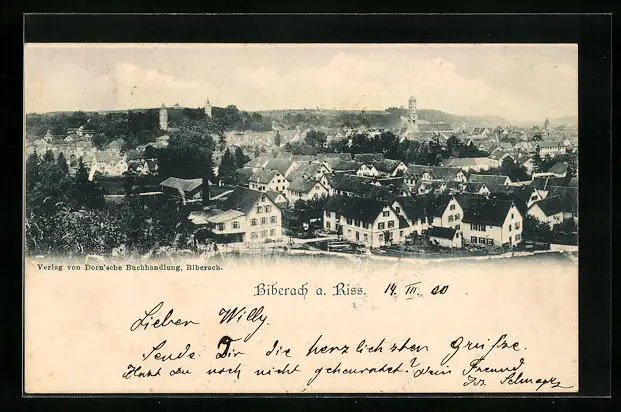 Verlag von Dorn'sche Buchhandlung, Biberach.
Biberach a. Riss. 14. III. 00
Lieben Willy.
Sende Dir die herzlichsten Grüsse.
Hast du noch nicht geheuratet? Dein Freund